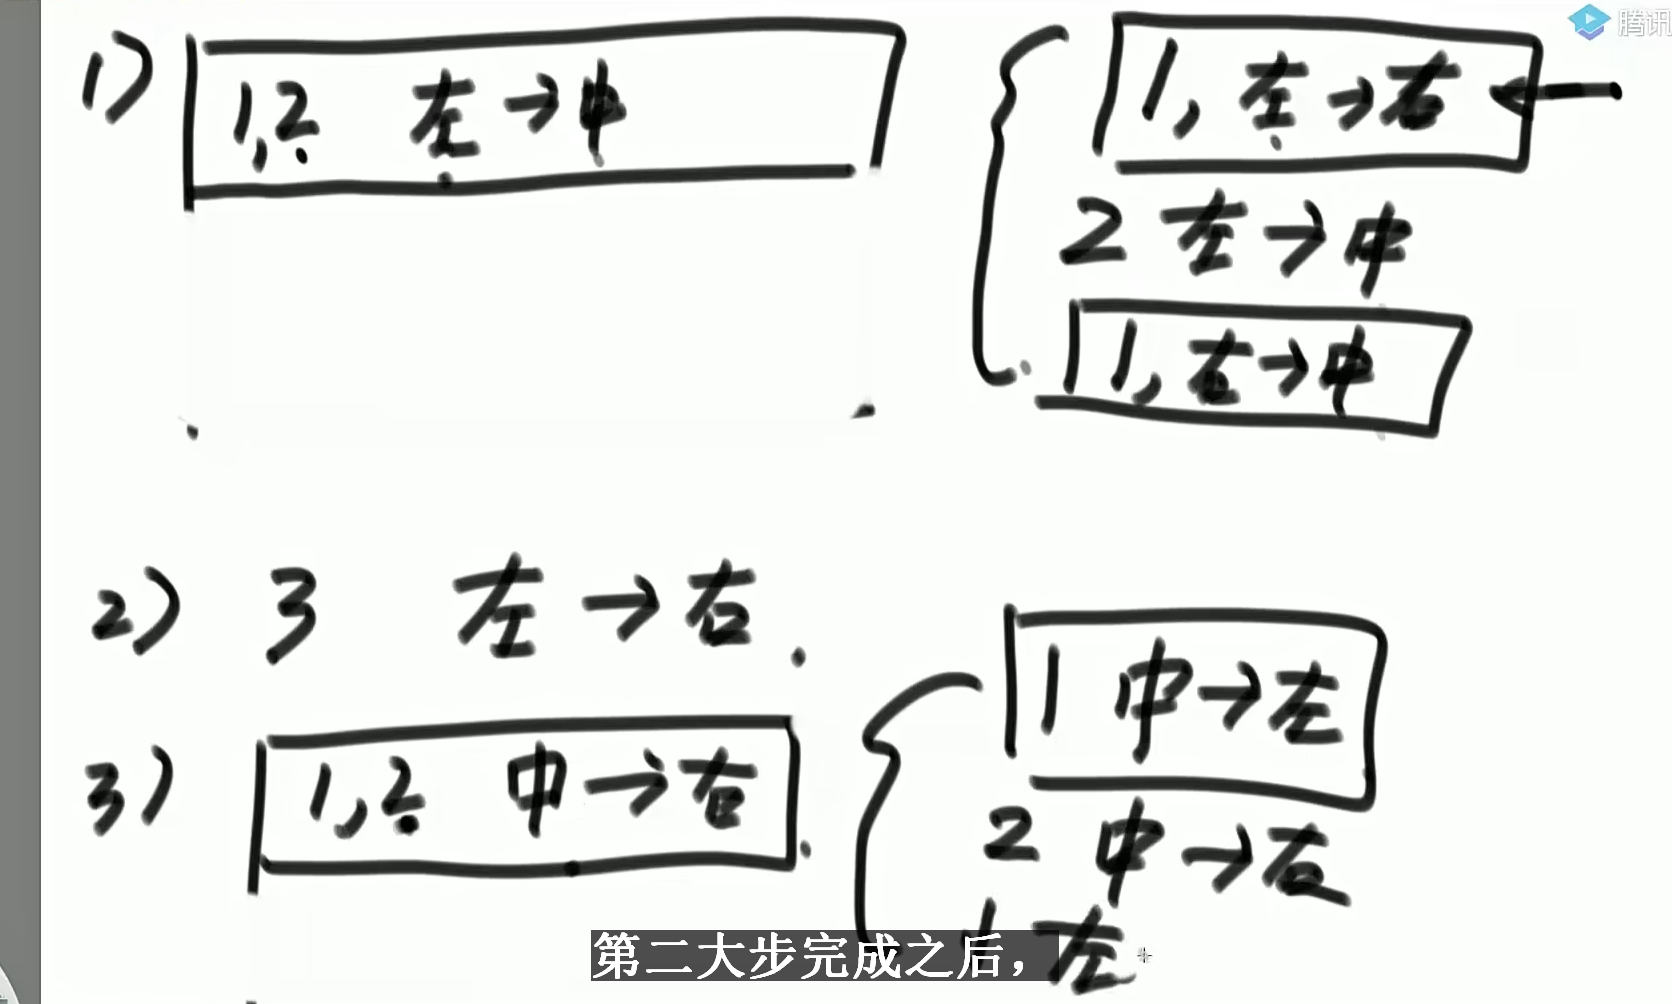 腾讯
1) 1,2 左→中
1, 左→右 ←
2 左→中
1, 右→中
2) 3 左→右
3) 1,2 中→右
1 中→左
2 中→右
1 左
第二大步完成之后，